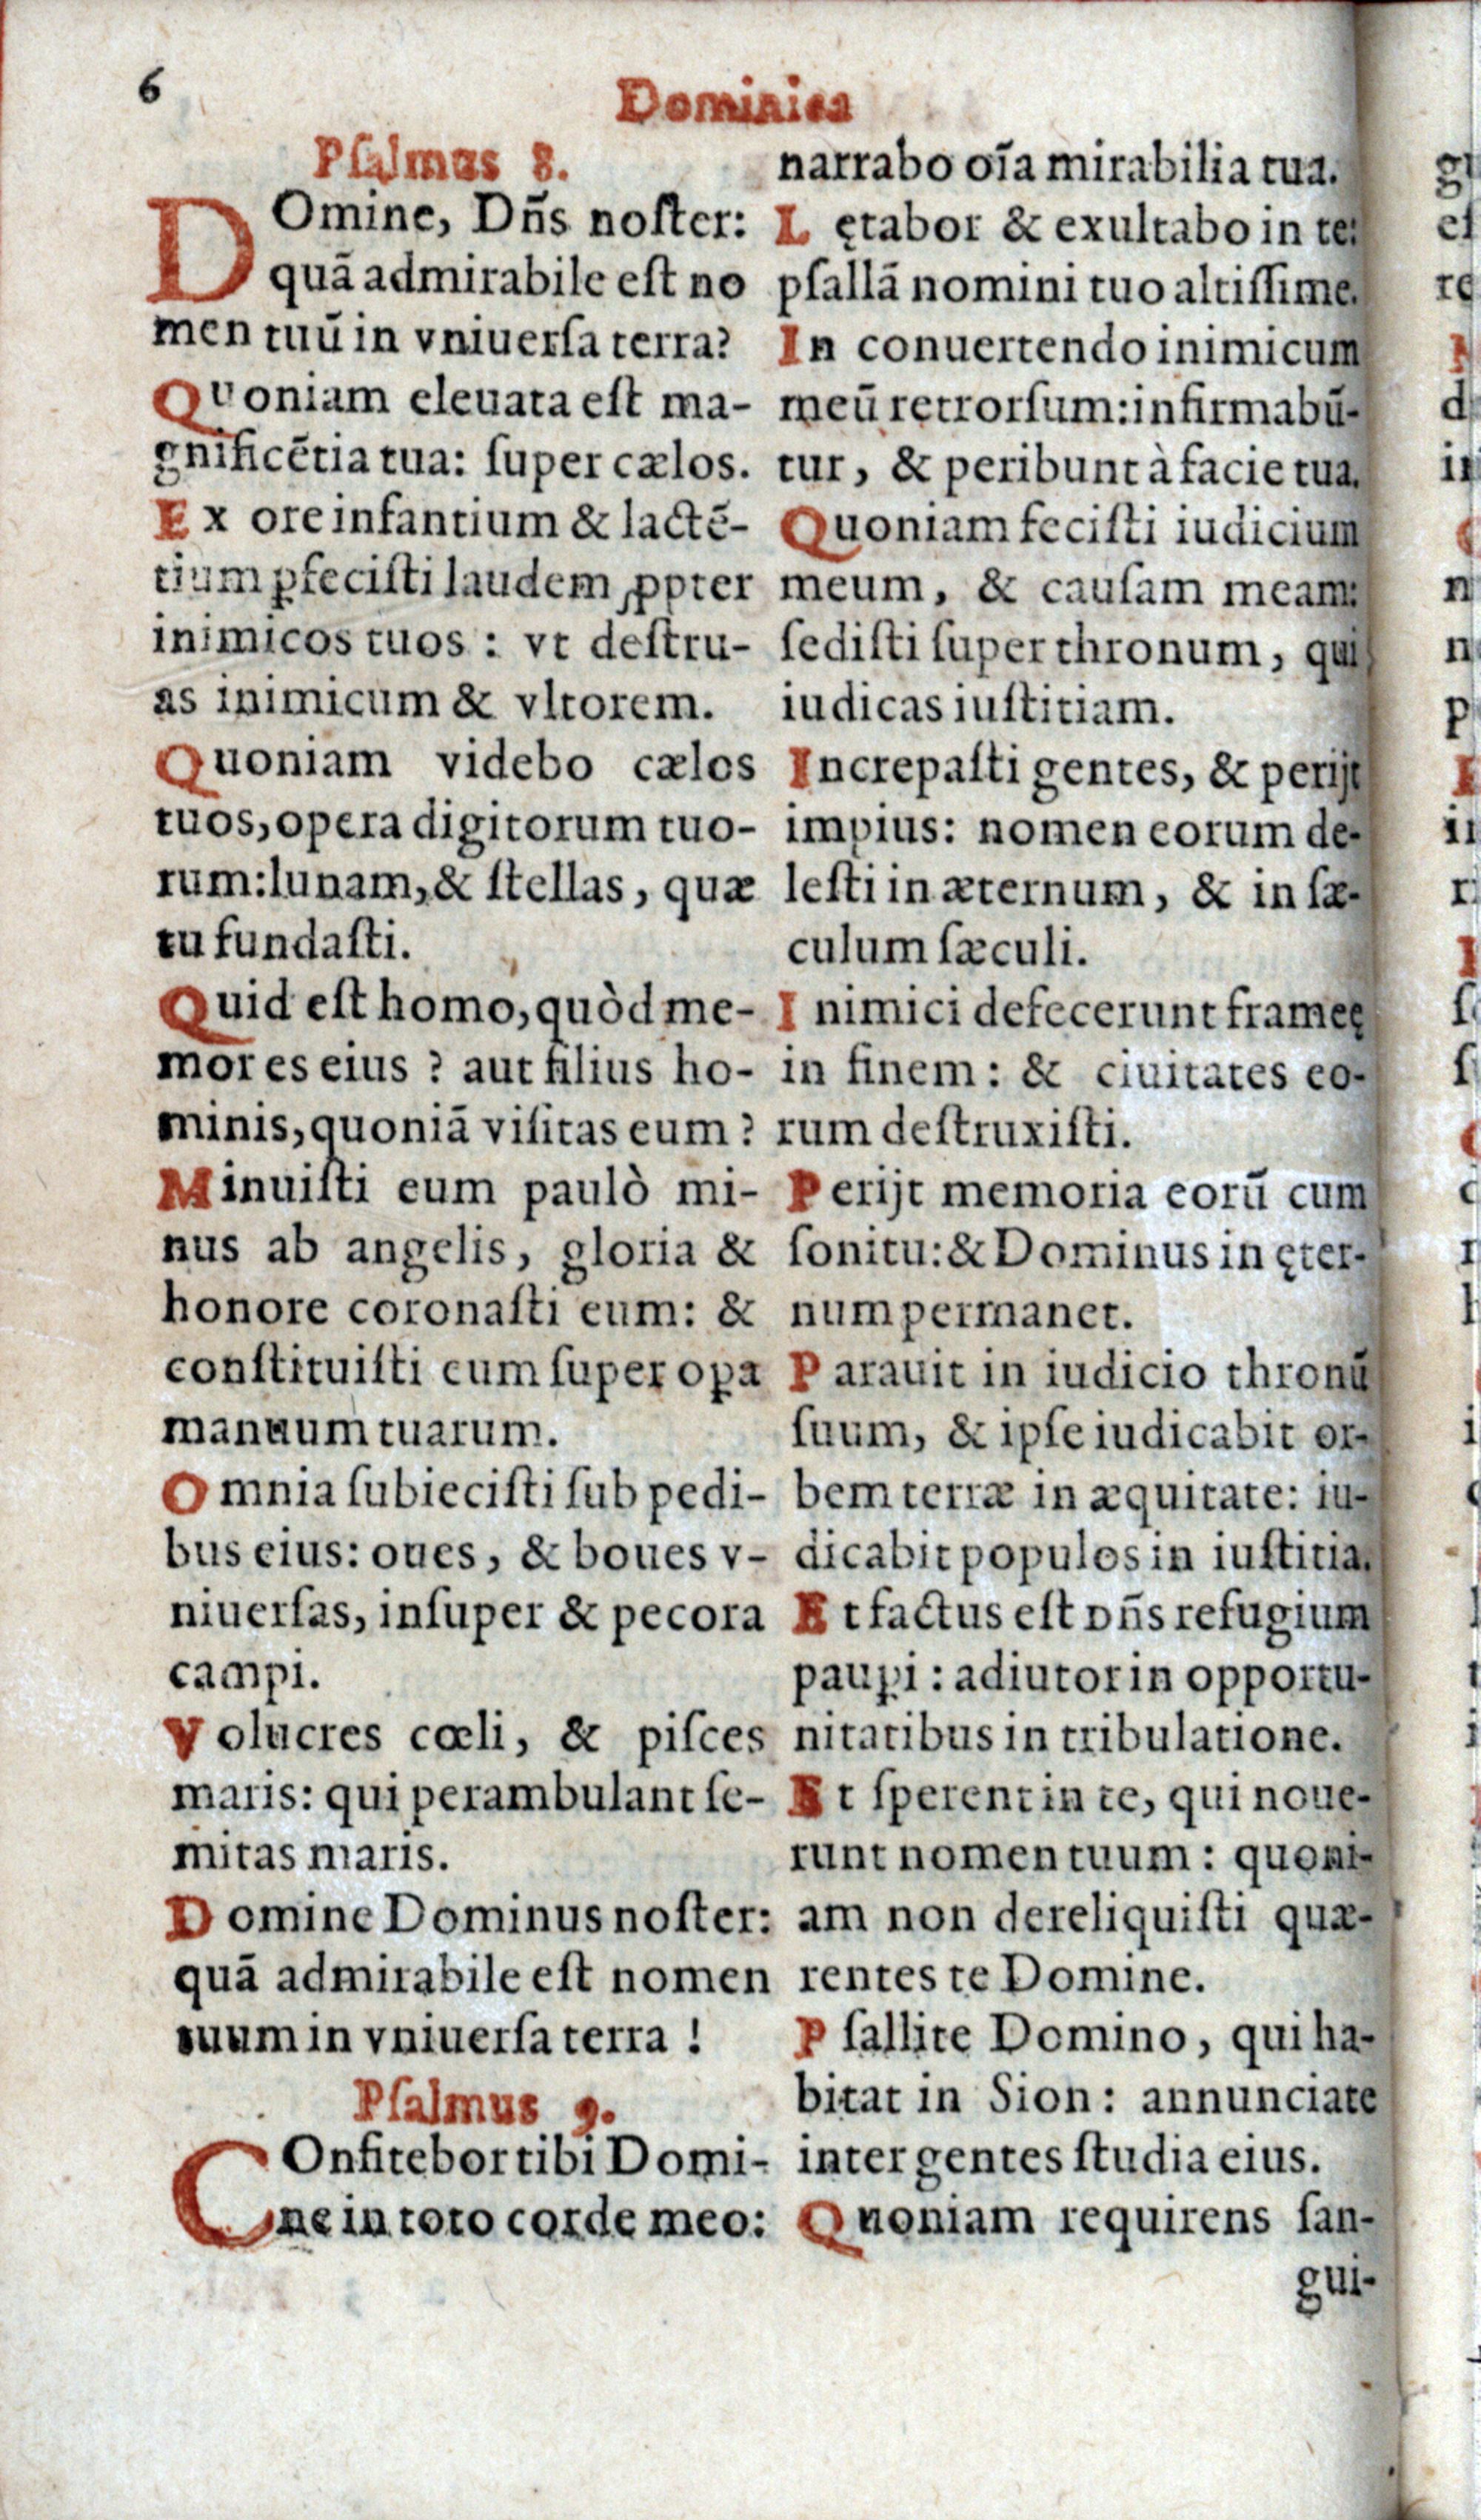 6
Dominica
Pſalmus 8.
DOmine, Dñs noſter:
quã admirabile eſt no
men tuũ in vniuerſa terra?
Quoniam eleuata eſt ma-
gnificẽtia tua: ſuper cælos.
Ex ore infantium & lactẽ-
tium ꝑfeciſti laudem ꝓpter
inimicos tuos : vt deſtru-
as inimicum & vltorem.
Quoniam videbo cælos
tuos, opera digitorum tuo-
rum: lunam, & ſtellas, quæ
tu fundaſti.
Quid eſt homo, quòd me-
mor es eius ? aut filius ho-
minis, quoniã viſitas eum ?
Minuiſti eum paulò mi-
nus ab angelis, gloria &
honore coronaſti eum: &
conſtituiſti eum ſuper oꝑa
manuum tuarum.
Omnia ſubieciſti ſub pedi-
bus eius: oues, & boues v-
niuerſas, inſuper & pecora
campi.
Volucres cœli, & piſces
maris: qui perambulant ſe-
mitas maris.
Domine Dominus noſter:
quã admirabile eſt nomen
tuum in vniuerſa terra !
Pſalmus 9.
COnfitebor tibi Domi-
ne in toto corde meo:
narrabo oĩa mirabilia tua.
Lętabor & exultabo in te:
pſallã nomini tuo altiſſime.
In conuertendo inimicum
meũ retrorſum: infirmabũ-
tur, & peribunt à facie tua.
Quoniam feciſti iudicium
meum, & cauſam meam:
ſediſti ſuper thronum, qui
iudicas iuſtitiam.
Increpaſti gentes, & perijt
impius: nomen eorum de-
leſti in æternum, & in ſæ-
culum ſæculi.
Inimici defecerunt frameę
in finem : & ciuitates eo-
rum deſtruxiſti.
Perijt memoria eorũ cum
ſonitu: & Dominus in ęter-
num permanet.
Parauit in iudicio thronũ
ſuum, & ipſe iudicabit or-
bem terræ in æquitate: iu-
dicabit populos in iuſtitia.
Et factus eſt Dñs refugium
pauꝑi : adiutor in opportu-
nitatibus in tribulatione.
Et ſperent in te, qui noue-
runt nomen tuum : quoni-
am non dereliquiſti quæ-
rentes te Domine.
Pſallite Domino, qui ha-
bitat in Sion : annunciate
inter gentes ſtudia eius.
Quoniam requirens ſan-
gui-